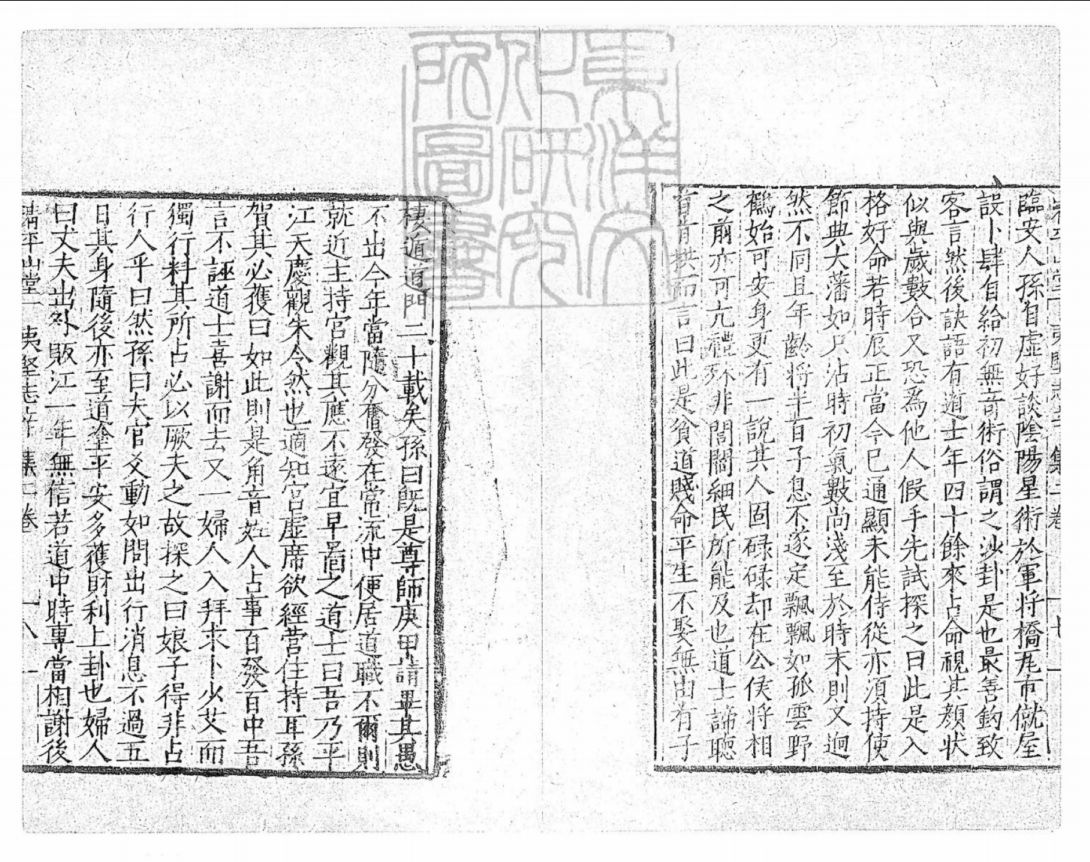 臨安人孫自虛好談陰陽星術於軍将橋瓦市僦屋
設卜肆自給初無竒術俗謂之沙卦是也最善鈎致
客言然後訣語有道士年四十餘來占命視其顏狀
似與歲數合又恐為他人假手先試探之曰此是入
格好命若時辰正當今已通顯未能侍從亦須持使
節典大藩如只沾時初氣數尚淺至於時末則又迥
然不同且年齡将半百子息不逐定飄飄如孤雲野
鶴始可安身更有一說其人固碌碌却在公侯将相
之前亦可亢禮殊非閭閻細民所能及也道士諦聽
首肯拱而言曰此是貧道賤命平生不娶無由有子
棲遁道門二十載矣孫曰旣是尊師庚甲請畢其愚
不出今年當隨分奮發在常流中便居道職不爾則
就近主持宫觀其應不遠宜早啚之道士曰吾乃平
江天慶觀朱今然也適知宫虛席欲經營住持耳孫
賀其必獲曰如此則是角音姓人占事百發百中吾
言不誣道士喜謝而去又一婦人入拜求卜少艾而
獨行料其所占必以厥夫之故探之曰娘子得非占
行人乎曰然孫曰夫官爻動如問出行消息不過五
日其身隨後亦至道塗平安多獲財利上卦也婦人
曰丈夫出外販江一年無信若道中時專當相謝後
清平山堂 夷堅志 集二卷 十八